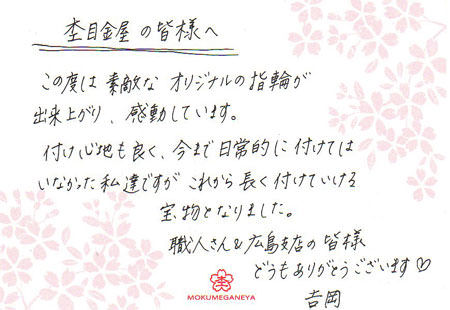 杢目金屋の皆様へ
この度は素敵なオリジナルの指輪が
出来上がり、感動しています。
付け心地も良く、今まで日常的に付けては
いなかった私達ですがこれから長く付けていける
宝物となりました。
職人さん&広島支店の皆様
どうもありがとうございます♡
MOKUMEGANEYA
吉岡